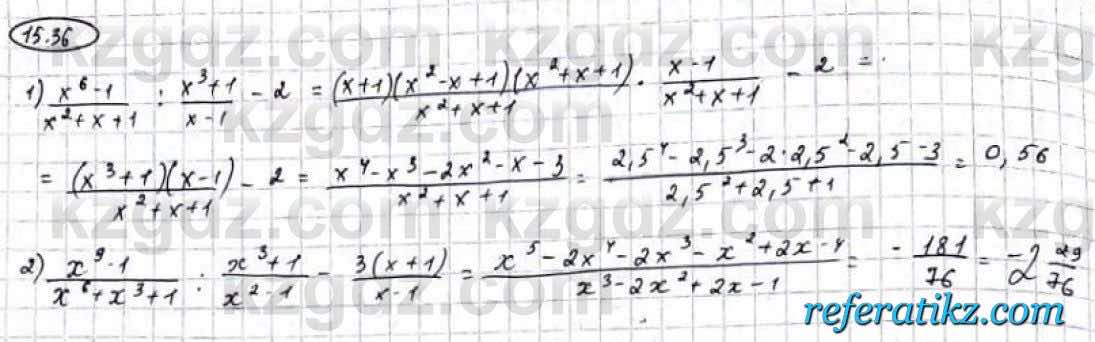 15.36
kzgdz.com kzgdz.com kzgdz.com
1) \frac{x^6-1}{x^2+x+1} : \frac{x^3+1}{x-1} - 2 = \frac{(x+1)(x^2-x+1)(x^2+x+1)}{x^2+x+1} · \frac{x-1}{x^2+x+1} - 2 =
kzgdz.com
= \frac{(x^3+1)(x-1)}{x^2+x+1} - 2 = \frac{x^4-x^3-2x^2-x-3}{x^2+x+1} = \frac{2,5^4-2,5^3-2·2,5^2-2,5-3}{2,5^2+2,5+1} = 0,56
kzgdz.com kzgdz.com
2) \frac{x^9-1}{x^6+x^3+1} : \frac{x^3+1}{x^2-1} - \frac{3(x+1)}{x-1} = \frac{x^5-2x^4-2x^3-x^2+2x-4}{x^3-2x^2+2x-1} = -\frac{181}{76} = -2\frac{29}{76}
referatikz.com